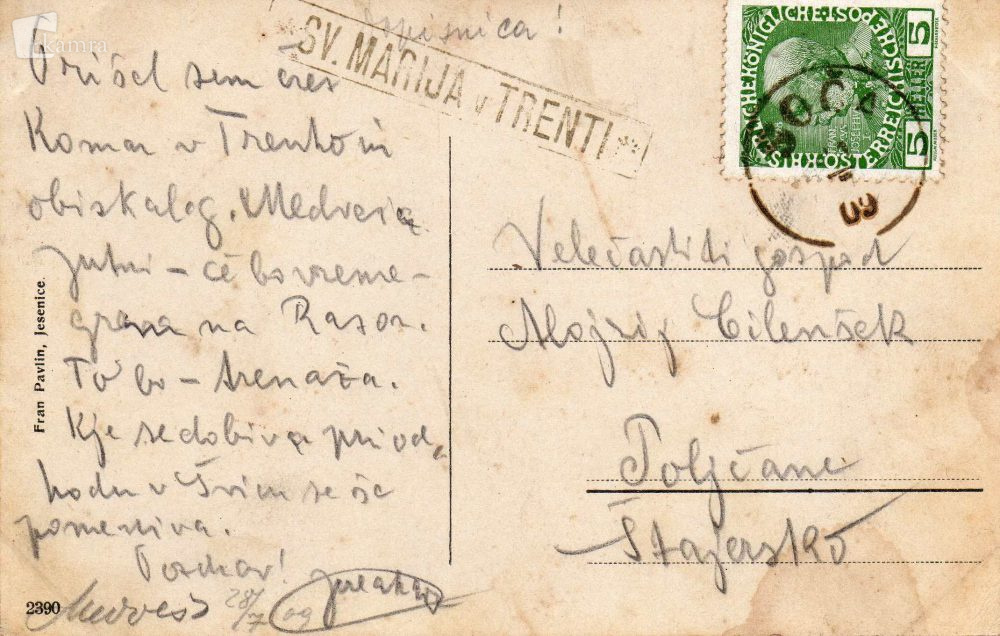 kamra
Dopisnica!
SV. MARIJA v TRENTI
K.K. ÖSTERREICHISCHE·KÖNIGLICHE·POST
5 HELLER 5
SOČA
09
Prišel sem črez
Komar v Trento in
obiskal g.
Jutri – če bo vreme –
greva na Razor.
To bo – trenaža.
Kje se dobiva pri od-
hodu v Švico se še
pomeniva.
Pozdrav!
28/7 09
2390
Fran Pavlin, Jesenice.
Velečastiti gospod
Alojzij Cilenšek
Poljčane
Štajersko